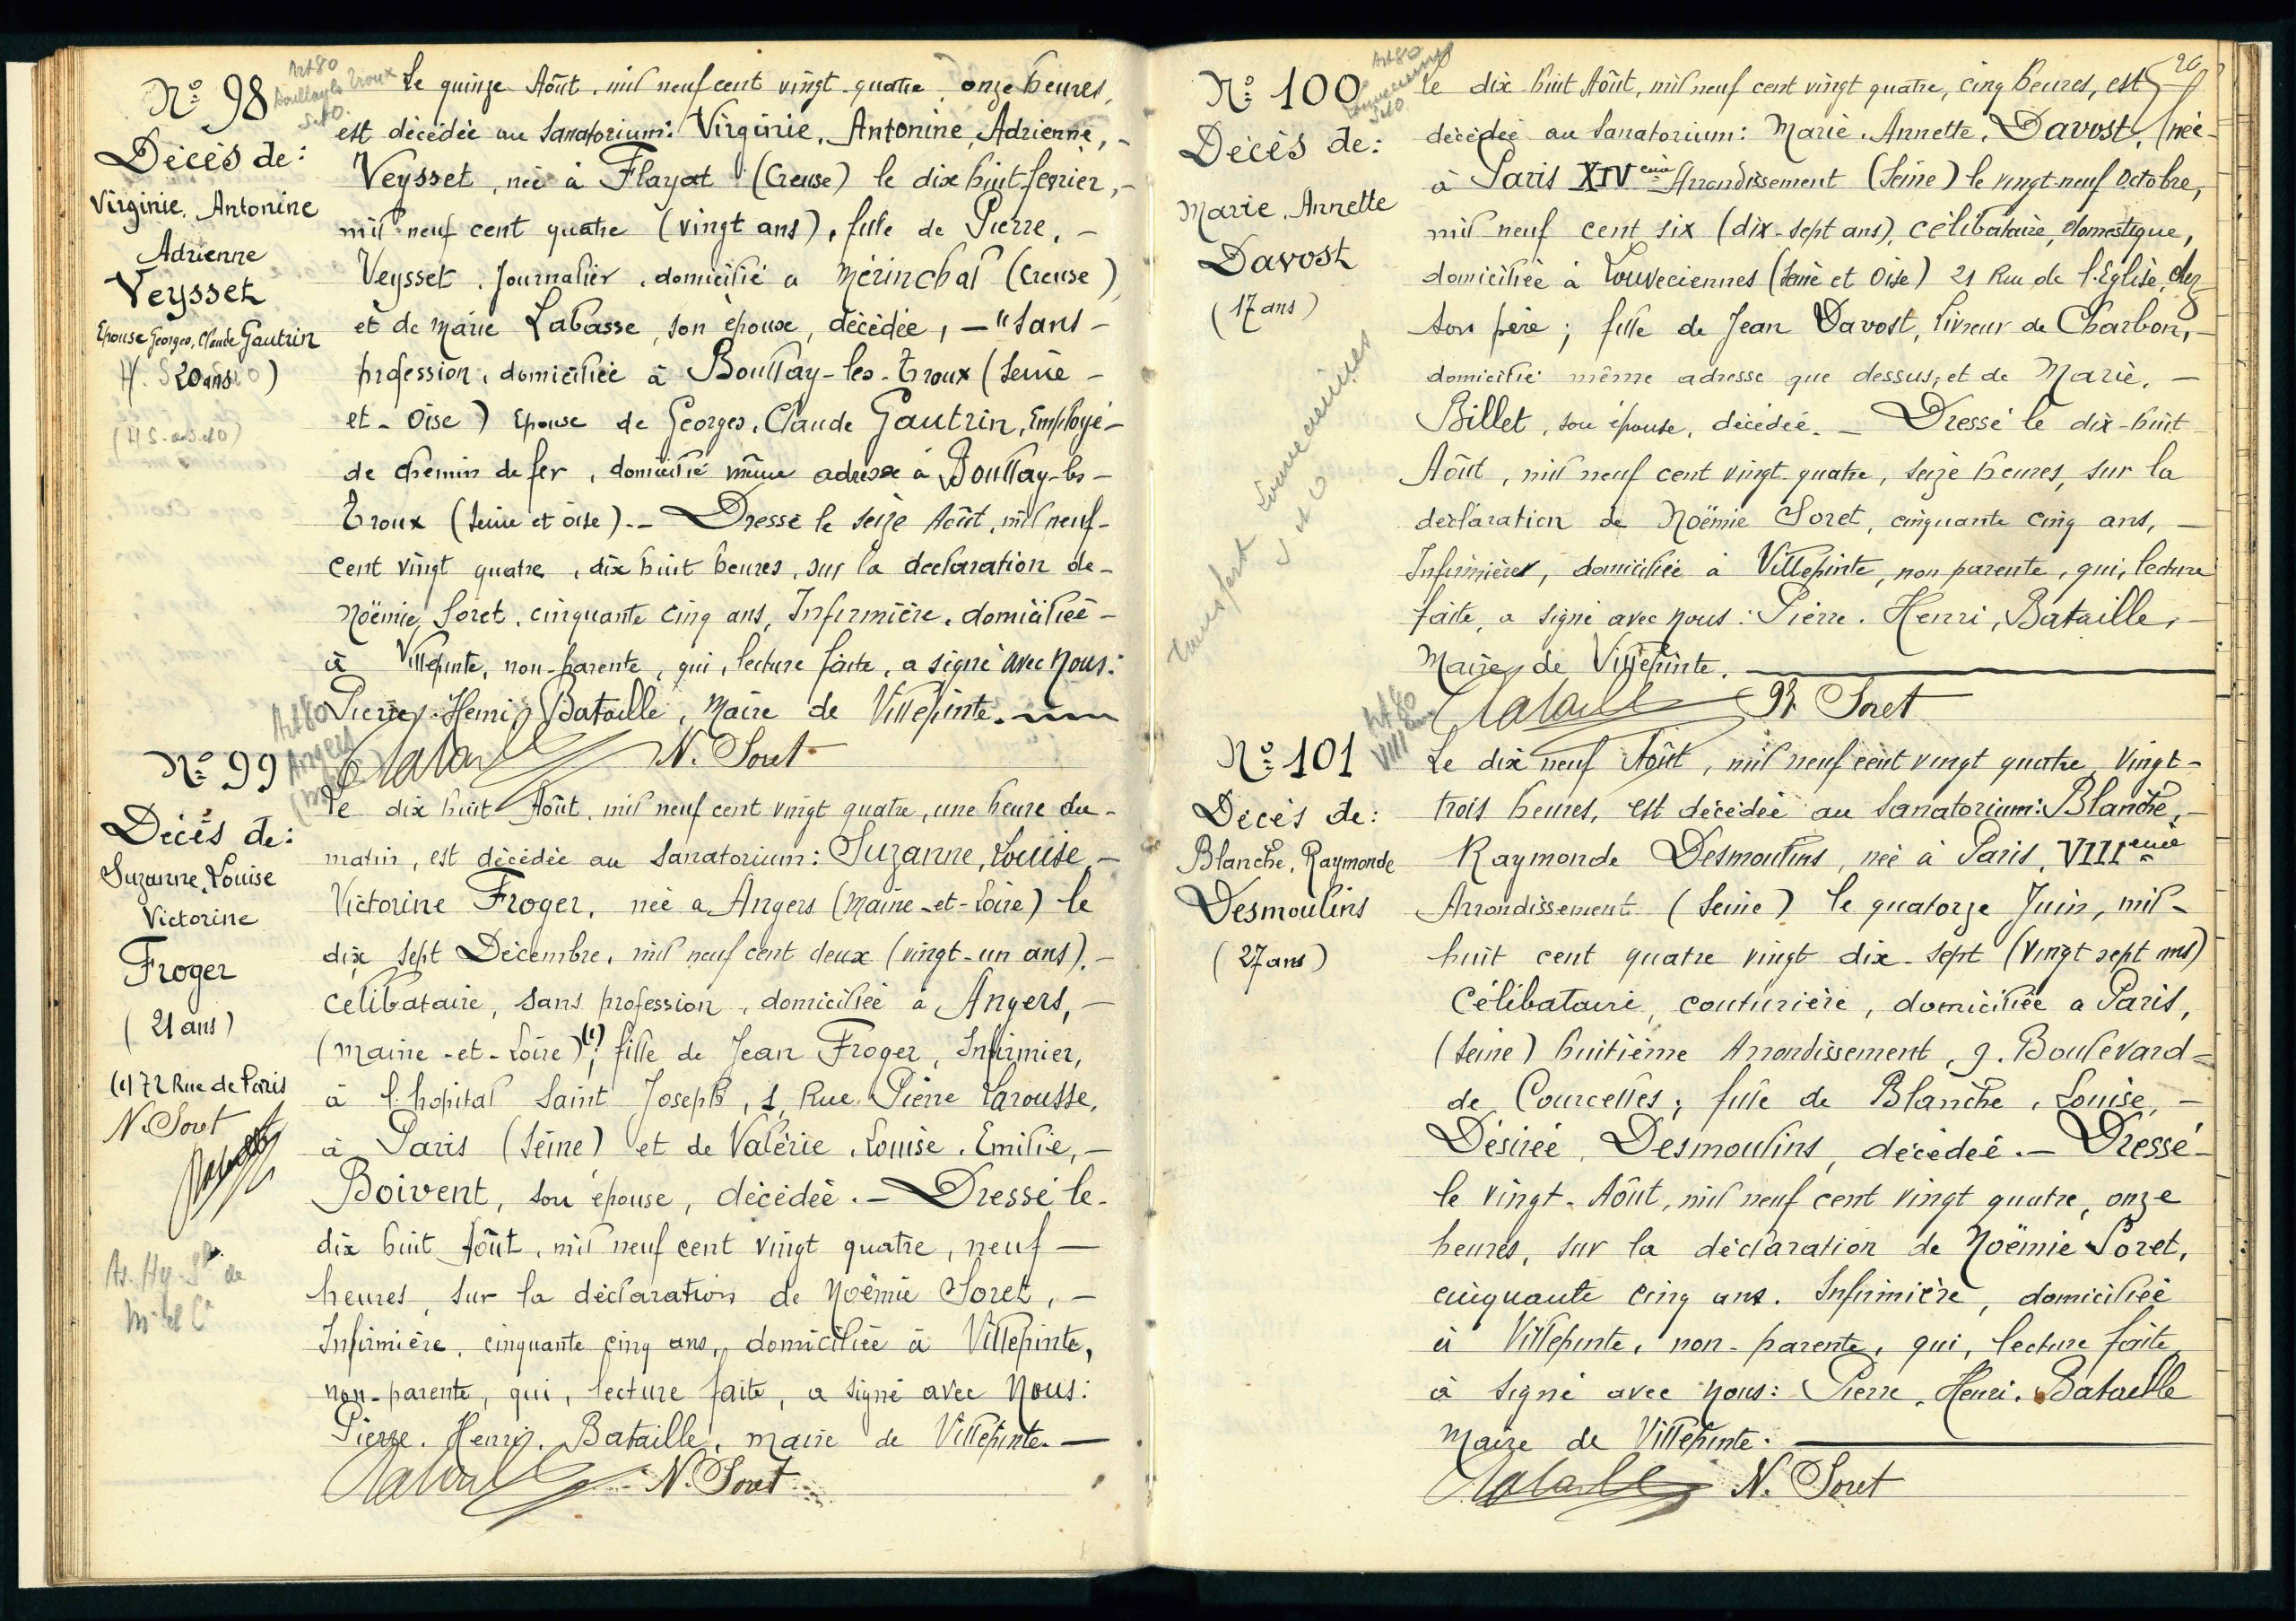 Nº 98
Art 80
Boullay les Troux
S.&O.
Décès de:
Virginie, Antonine
Adrienne
Veysset
Epouse Georges, Claude Gautrin
(20 ans)
(H S. a S. et O)
Le quinze Août, mil neuf cent vingt-quatre, onze heures,
est décédée au Sanatorium: Virginie, Antonine, Adrienne, -
Veysset, née à Flayat (Creuse) le dix huit février, -
mil neuf cent quatre (vingt ans), fille de Pierre, -
Veysset, Journalier, domicilié a Mérinchal (Creuse)
et de Marie Labasse, son épouse, décédée, - "sans -
profession, domiciliée à Boullay-les-Troux (Seine -
et - Oise) Epouse de Georges, Claude Gautrin, Employé -
de chemin de fer, domicilié même adresse à Boullay-les -
Troux (Seine et Oise). - Dressé le seize Août, mil neuf -
cent vingt quatre, dix huit heures, sur la declaration de -
Noëmie Soret, cinquante cinq ans, Infirmière, domiciliée -
à Villepinte, non-parente, qui, lecture faite, a signé avec Nous:
Pierre, Henri, Bataille, Maire de Villepinte.
Bataille N. Soret
Nº 99
Art 80
Angers
Décès de:
Suzanne, Louise
Victorine
Froger
(21 ans)
(1) 72 Rue de Paris
N. Soret
Bataille
Le dix huit Août, mil neuf cent vingt quatre, une heure du -
matin, est décédée au Sanatorium: Suzanne, Louise, -
Victorine Froger, née a Angers (Maine-et-Loire) le
dix sept Décembre, mil neuf cent deux (vingt-un ans), -
célibataire, sans profession, domiciliée à Angers, -
(Maine-et-Loire) (1); fille de Jean Froger, Infirmier,
à l'hopital Saint Joseph, 1, Rue Pierre Larousse,
à Paris (Seine) et de Valérie, Louise, Emilie, -
Boivent, son épouse, décédée. - Dressé le -
dix huit Août, mil neuf cent vingt quatre, neuf -
heures, sur la déclaration de Noëmie Soret, -
Infirmière, cinquante cinq ans, domiciliée à Villepinte,
non-parente, qui, lecture faite, a signé avec Nous:
Pierre, Henri, Bataille, Maire de Villepinte. -
Bataille N. Soret
20
Nº 100
Art 80
Louveciennes
S&O.
Décès de:
Marie, Annette
Davost
(17 ans)
Transfert Louveciennes
S et O
Le dix huit Août, mil neuf cent vingt quatre, cinq heures, est
décédée au Sanatorium: Marie, Annette, Davost, née -
à Paris XIVeme Arrondissement (Seine) le vingt-neuf Octobre,
mil neuf cent six (dix-sept ans), célibataire, domestique,
domiciliée à Louveciennes (Seine et Oise) 21 Rue de l'Eglise, chez
son père; fille de Jean Davost, livreur de Charbon, -
domicilié même adresse que dessus, et de Marie, -
Billet, son épouse, décédée. - Dressé le dix-huit
Août, mil neuf cent vingt quatre, seize heures, sur la
déclaration de Noëmie Soret, cinquante cinq ans, -
Infirmière, domiciliée à Villepinte, non parente, qui, lecture
faite, a signé avec Nous: Pierre, Henri, Bataille, -
Maire de Villepinte.
Bataille N. Soret
Nº 101
Art 80
VIII
Décès de:
Blanche, Raymonde
Desmoulins
(27 ans)
Le dix neuf Août, mil neuf cent vingt quatre, vingt -
trois heures, est décédée au Sanatorium: Blanche, -
Raymonde Desmoulins, née à Paris, VIIIeme
Arrondissement (Seine) le quatorze Juin, mil -
huit cent quatre vingt dix-sept (vingt sept ans)
Célibataire, couturière, domiciliée a Paris,
(Seine) huitième Arrondissement, 9. Boulevard -
de Courcelles; fille de Blanche, Louise, -
Désirée, Desmoulins, décédée. - Dressé -
le vingt - Août, mil neuf cent vingt quatre, onze
heures, sur la déclaration de Noëmie Soret,
cinquante cinq ans, Infirmière, domiciliée
à Villepinte, non-parente, qui, lecture faite
à signé avec Nous: Pierre, Henri, Bataille
Maire de Villepinte.
Bataille N. Soret